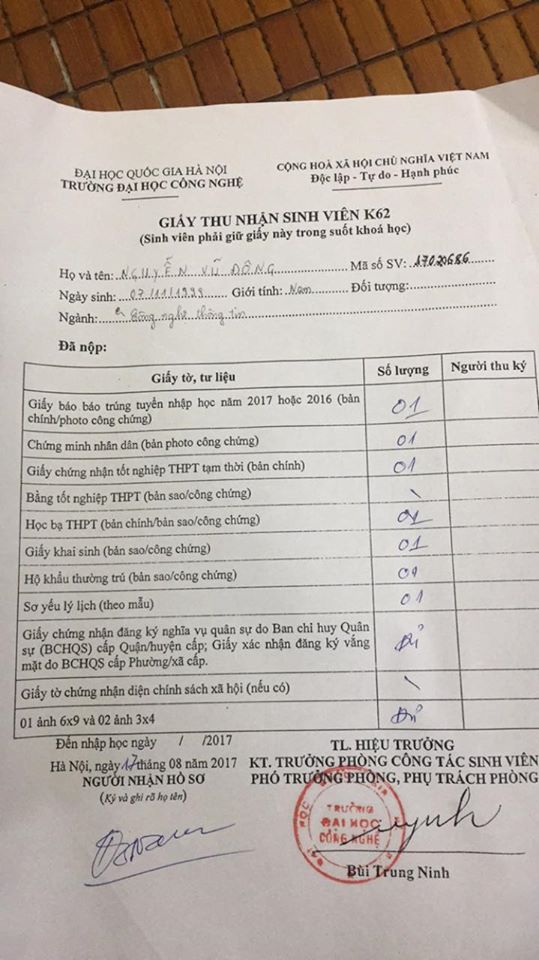 ĐẠI HỌC QUỐC GIA HÀ NỘI
TRƯỜNG ĐẠI HỌC CÔNG NGHỆ
CỘNG HOÀ XÃ HỘI CHỦ NGHĨA VIỆT NAM
Độc lập - Tự do - Hạnh phúc
GIẤY THU NHẬN SINH VIÊN K62
(Sinh viên phải giữ giấy này trong suốt khoá học)
Họ và tên: NGUYỄN VŨ ĐÔNG Mã số SV: 17020686
Ngày sinh: 07/11/1999 Giới tính: Nam Đối tượng:
Ngành: Công nghệ thông tin
Đã nộp:
Giấy tờ, tư liệu Số lượng Người thu ký
Giấy báo báo trúng tuyển nhập học năm 2017 hoặc 2016 (bản
chính/photo công chứng) 01
Chứng minh nhân dân (bản photo công chứng) 01
Giấy chứng nhận tốt nghiệp THPT tạm thời (bản chính) 01
Bằng tốt nghiệp THPT (bản sao/công chứng) \
Học bạ THPT (bản chính/bản sao/công chứng) 01
Giấy khai sinh (bản sao/công chứng) 01
Hộ khẩu thường trú (bản sao/công chứng) 01
Sơ yếu lý lịch (theo mẫu) 01
Giấy chứng nhận đăng ký nghĩa vụ quân sự do Ban chỉ huy Quân
sự (BCHQS) cấp Quận/huyện cấp; Giấy xác nhận đăng ký vắng
mặt do BCHQS cấp Phường/xã cấp. Đủ
Giấy tờ chứng nhận diện chính sách xã hội (nếu có) \
01 ảnh 6x9 và 02 ảnh 3x4 Đủ
Đến nhập học ngày / /2017
Hà Nội, ngày 17 tháng 08 năm 2017
NGƯỜI NHẬN HỒ SƠ
(Ký và ghi rõ họ tên)
TL. HIỆU TRƯỞNG
KT. TRƯỞNG PHÒNG CÔNG TÁC SINH VIÊN
PHÓ TRƯỞNG PHÒNG, PHỤ TRÁCH PHÒNG
TRƯỜNG
ĐẠI HỌC
CÔNG NGHỆ
Bùi Trung Ninh